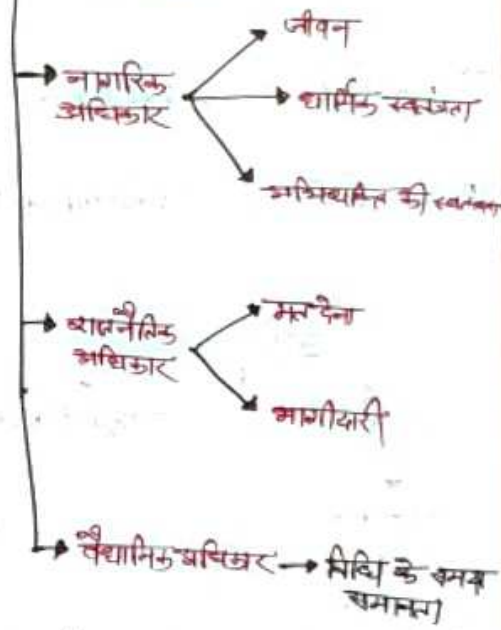 जीवन
नागरिक
अधिकार
धार्मिक स्वतंत्रता
अभिव्यक्ति की स्वतंत्रता
राजनैतिक
अधिकार
मत देना
भागीदारी
वैधानिक अधिकार → विधि के समक्ष
समानता